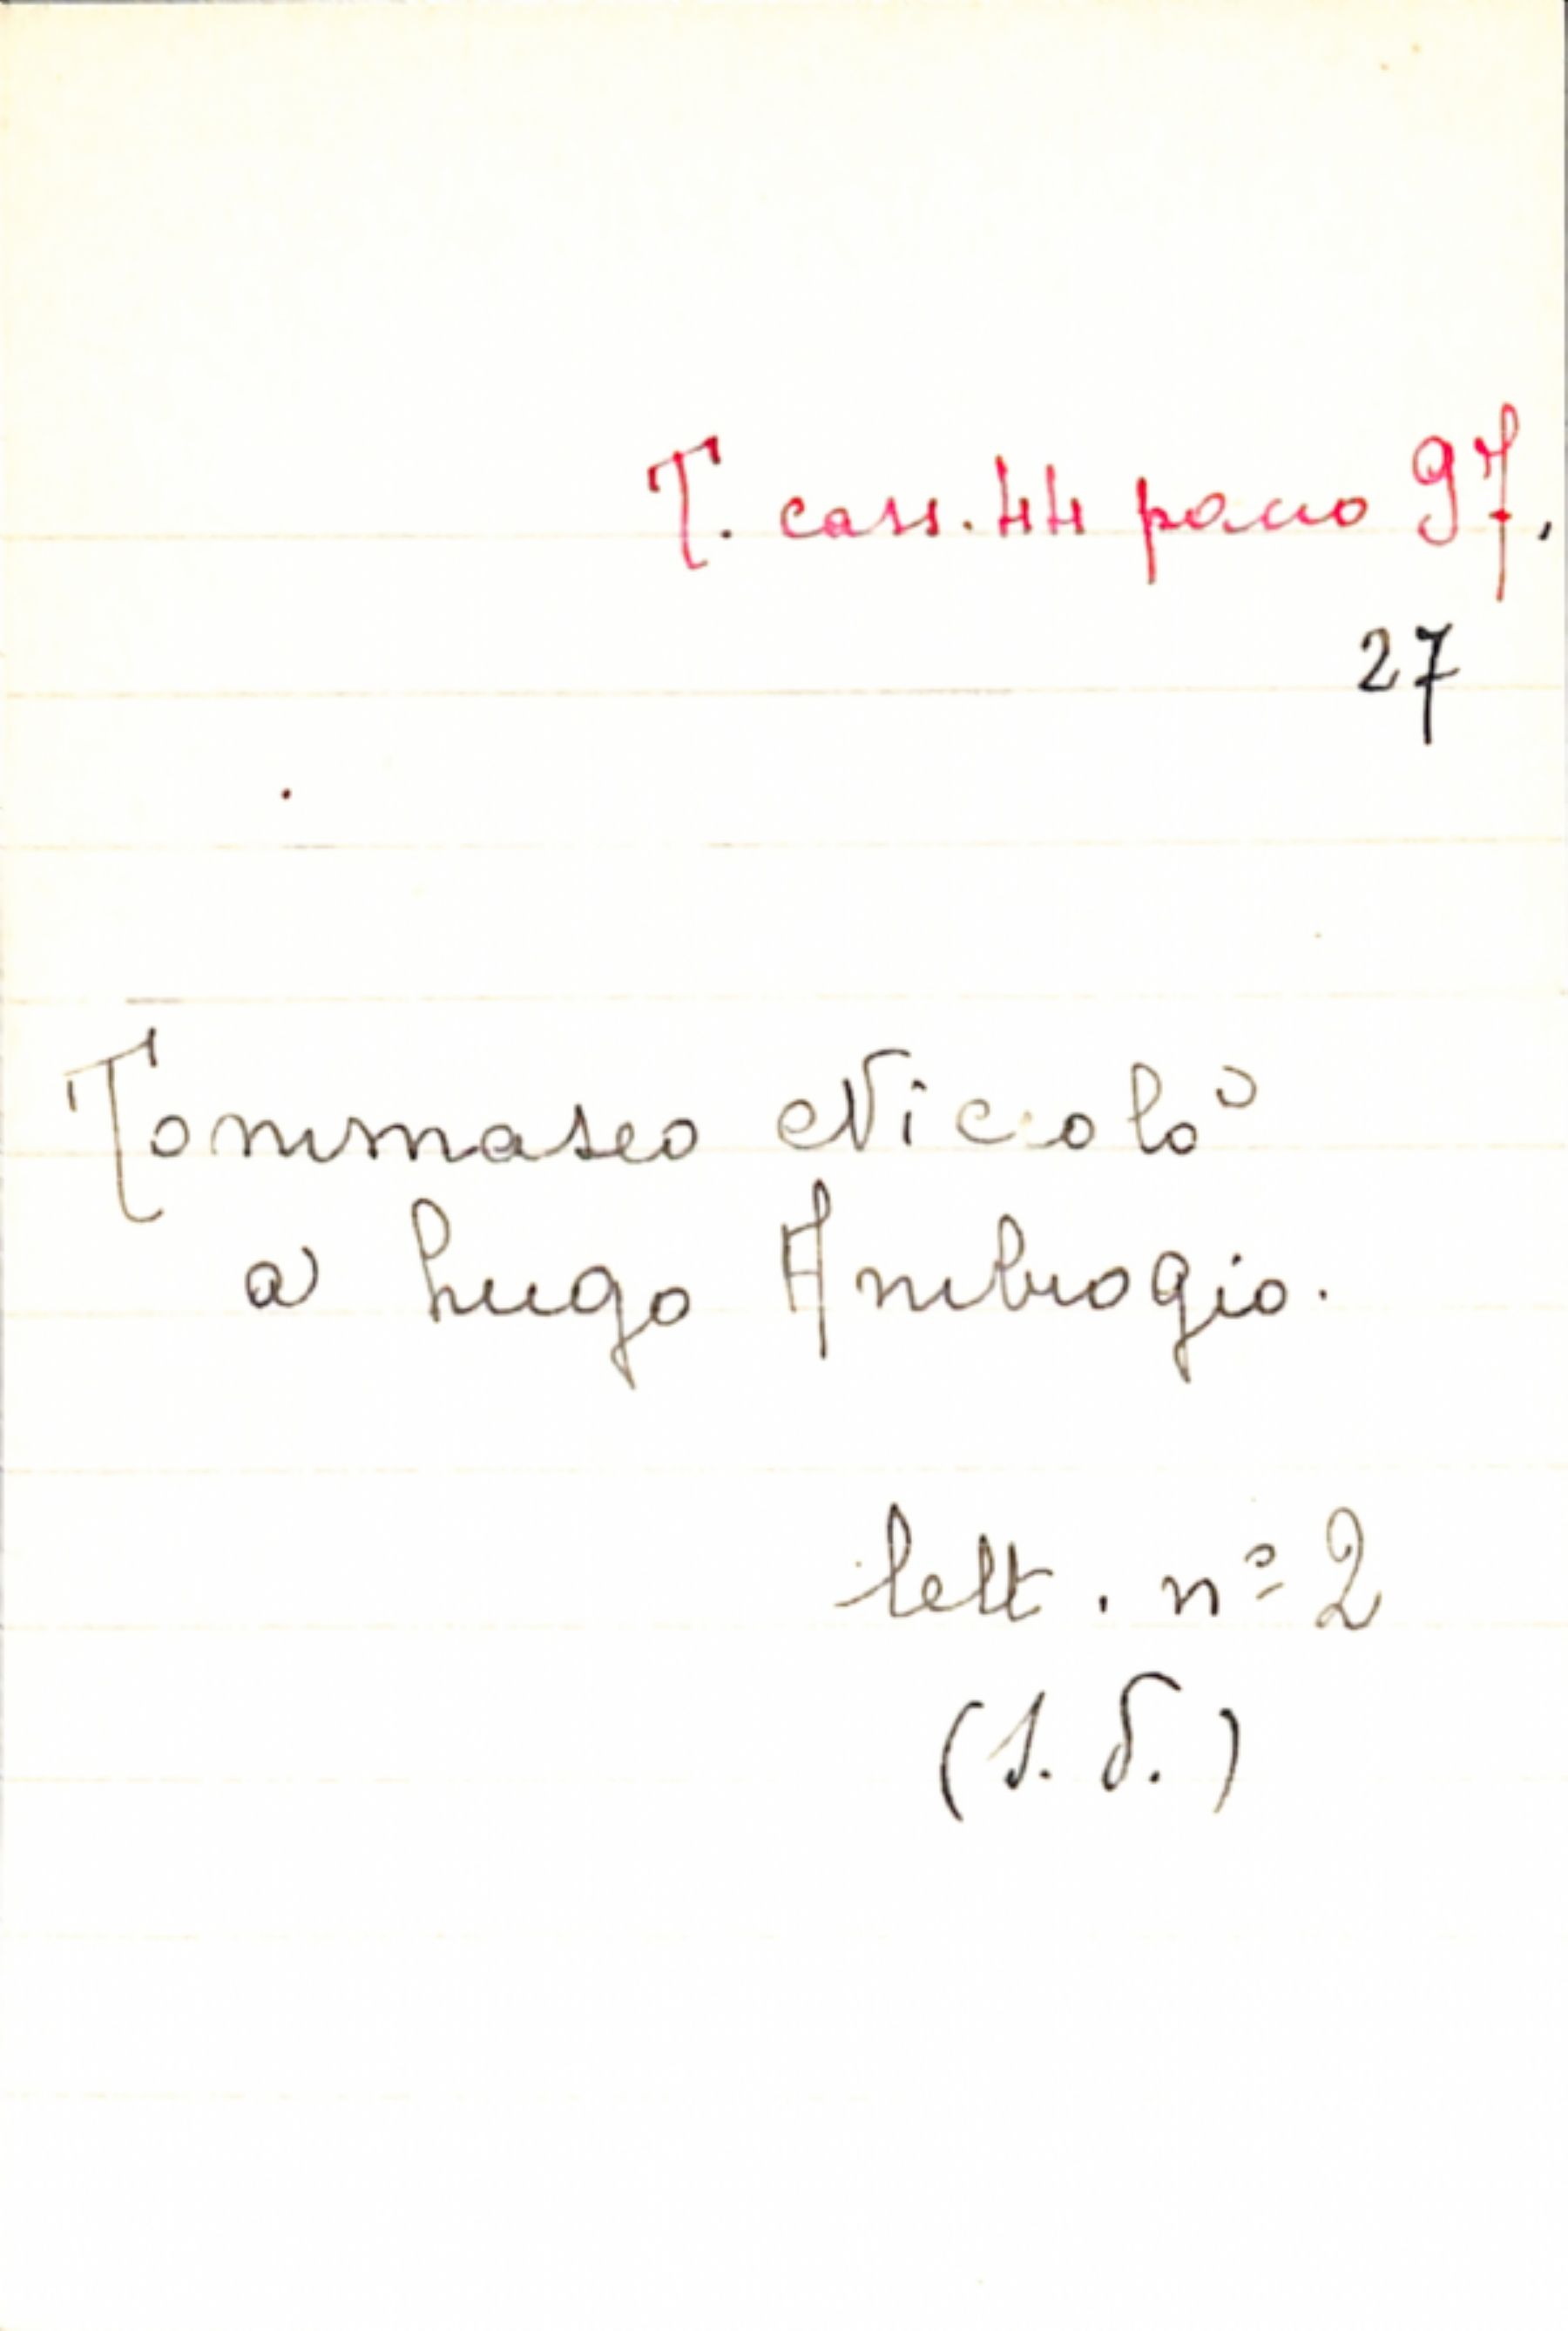 T. cass. 44 pacco 97,
27
Tommaseo Nicolò
a Lugo Ambrogio.
lett. nº 2
(s. d.)